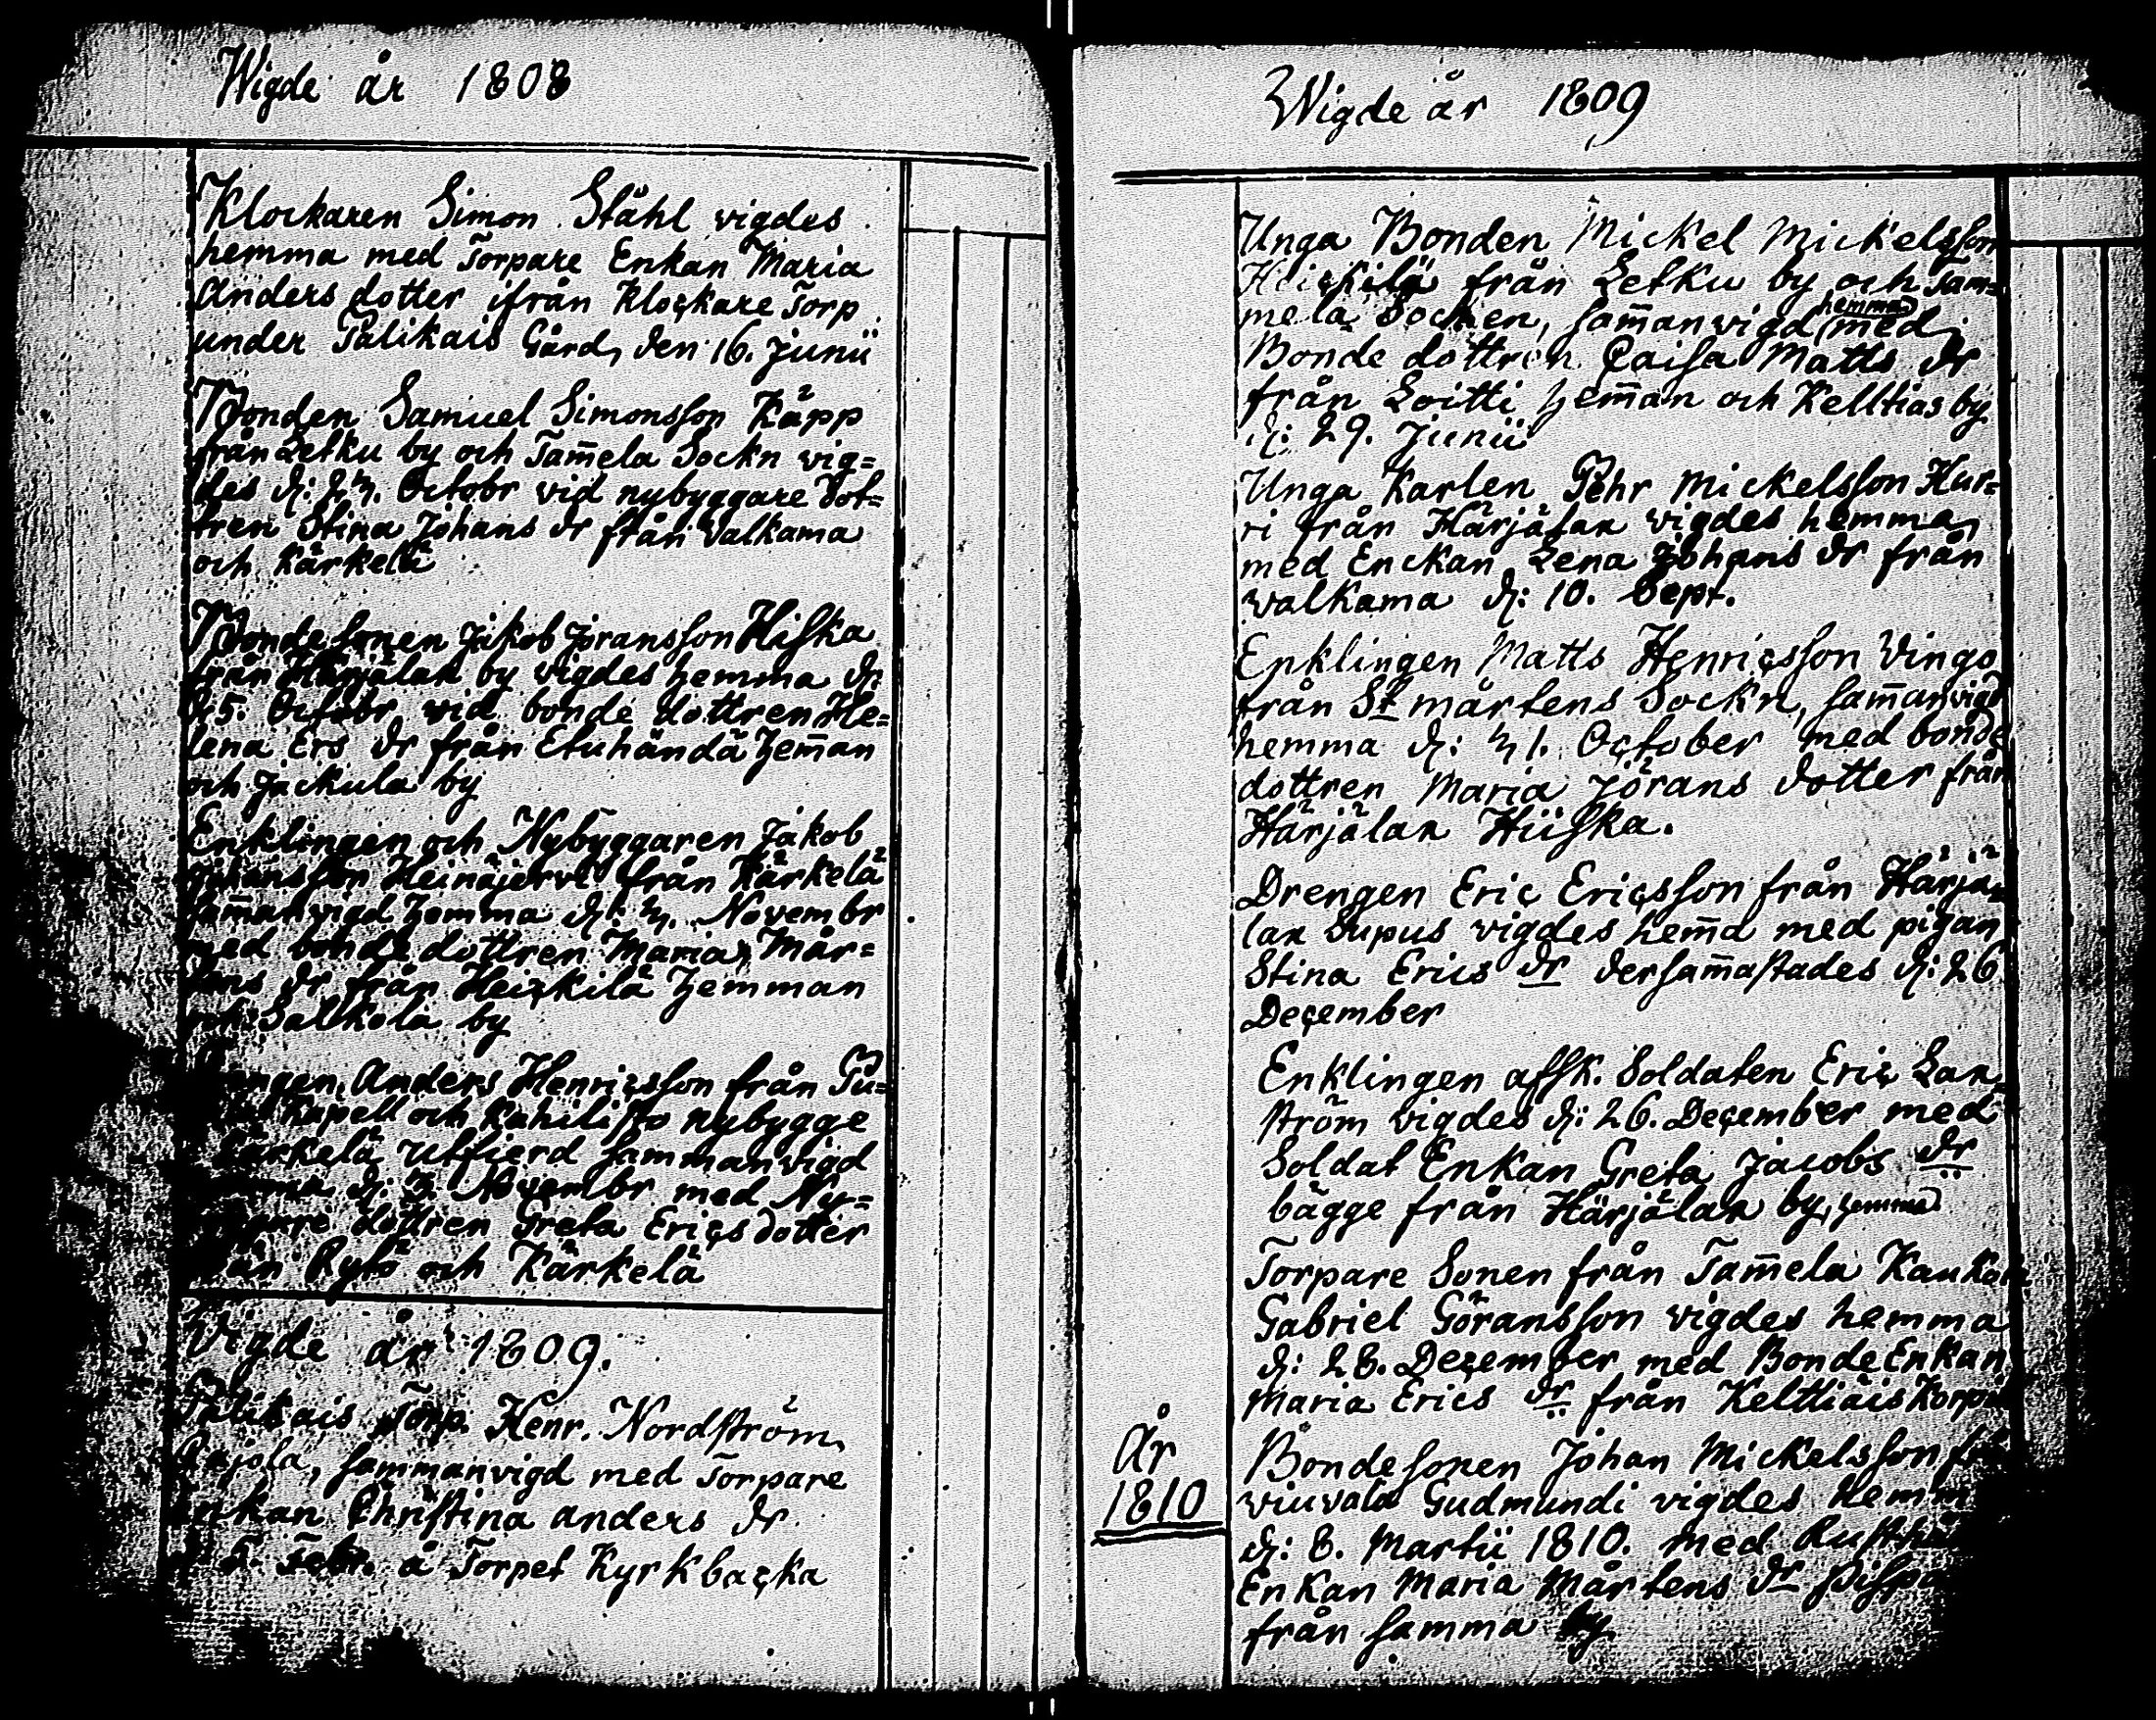 Wigde år 1808
Klockaren Simon Ståhl vigdes
hemma med Torpare Enkan Maria
Anders dotter ifrån Klockare Torp
under Palikais Gård, den 16. Junii
Bonden Samuel Simonsson Käpp
från Letku by och Tam̅ela Sockn vig=
des d: Octobr vid nybyggare Dot=
tren Stina Johans dr från Valkama
och Kärkelä
Bondesonen Jakob Jöransson Hiska
från Härjälan by vigdes hemma d:
25. Octobr vid bonde dottren He=
lena Ers dr från Etuhändä hem̅an
och Jackula by
Enklingen och Nybyggaren Jakob
Johansson Heinäjervi från Kärkelä
sam̅anvigd hemma d: Novembr
med bonde dottren Maria Mår=
tens dr från Heickilä hemman
och Salkola by
Anders Henricsson från Pu=
Kapell och Kahilisto nybygge
Kärkelä Utfjerd sammanvigd
d: 3. Novembr med Ny=
dottren Greta Ericsdotter
från Rylö och Kärkelä
Wigde år 1809.
Palikais Torp. Henr. Nordström
Pajola, sammanvigd med Torpare
Enkan Christina anders dr
d. 5. Febr. å Torpet Kyrkbacka
Wigde år 1809
Unga Bonden Mickel Mickelsson
Heickilä från Letku by och Tam=
mela Socken, sam̅anvigd hemma med
Bonde dottren Caisa Matts dr
från Loitti hem̅an och Kelltiäs by
d: 29. Junii
Unga Karlen Pehr Mickelsson Hur=
ri från Härjälan vigdes hemma
med Enckan Lena Johans dr från
Walkama d: 10. Sept.
Enklingen Matts Henricsson Vingo
från St mårtens Sockn, sam̅anvigd
hemma d: 31. October med bonde
dottren Maria Jörans dotter från
Härjälan Hiiska.
Drengen Eric Ericsson från Härjä=
lan Supus vigdes hem̅a med pigan
Stina Erics dr dersam̅astades d: 26
December
Enklingen afsk. Soldaten Eric Lan=
ström vigdes d: 26. December med
Soldat Enkan Greta Jacobs dr
bägge från Härjälan by, hemma
Torpare Sonen från Tam̅ela Kaukola
Gabriel Göransson vigdes hemma
d: 28. December med Bonde Enkan
Maria Erics dr från Kelttiäis Korpi
År
1810
Bondesonen Johan Mickelsson
Viuvala Gudmundi vigdes hemma
d: 8. Martii 1810. med
Enkan Maria Mårtens dr
från samma by